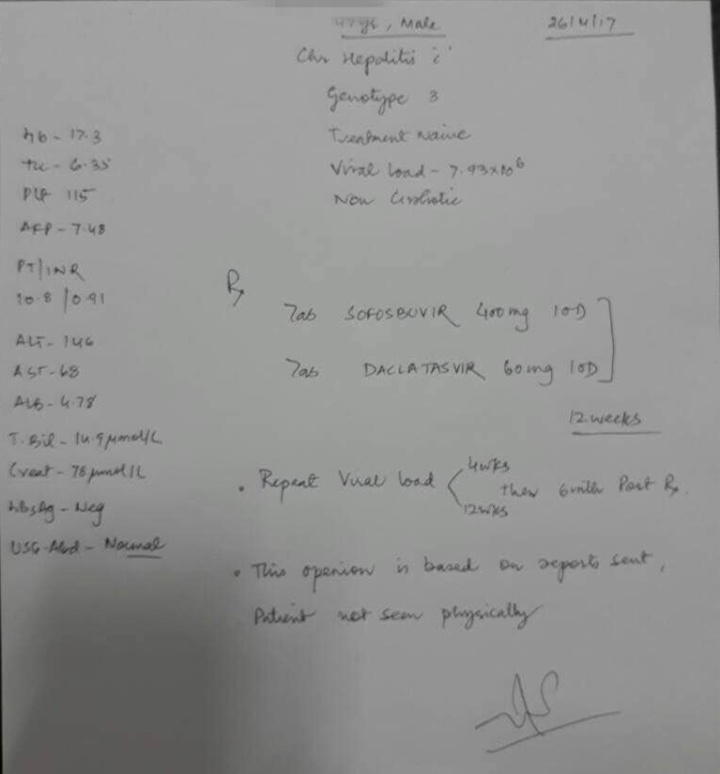 47 yrs, Male
26/4/17
Chr Hepatitis 'c'
Genotype 3
Treatment Naive
Viral load - 7.93x10⁶
Non Cirrhotic
Hb - 17.3
TLC - 6.35
PLT 115
AFP - 7.48
PT/INR
10.8/0.91
ALT - 146
AST - 68
ALB - 4.78
T. Bil - 14.9 µmol/L
Creat - 78 µmol/L
HbsAg - Neg
USG-Abd - Normal
Rx
Tab SOFOSBUVIR 400mg 1OD
Tab DACLATASVIR 60mg 1OD
12 weeks
• Repeat Viral load < 4wks 12wks then 6mths Post Rx.
• This openion is based on reports sent,
Patient not seen physically